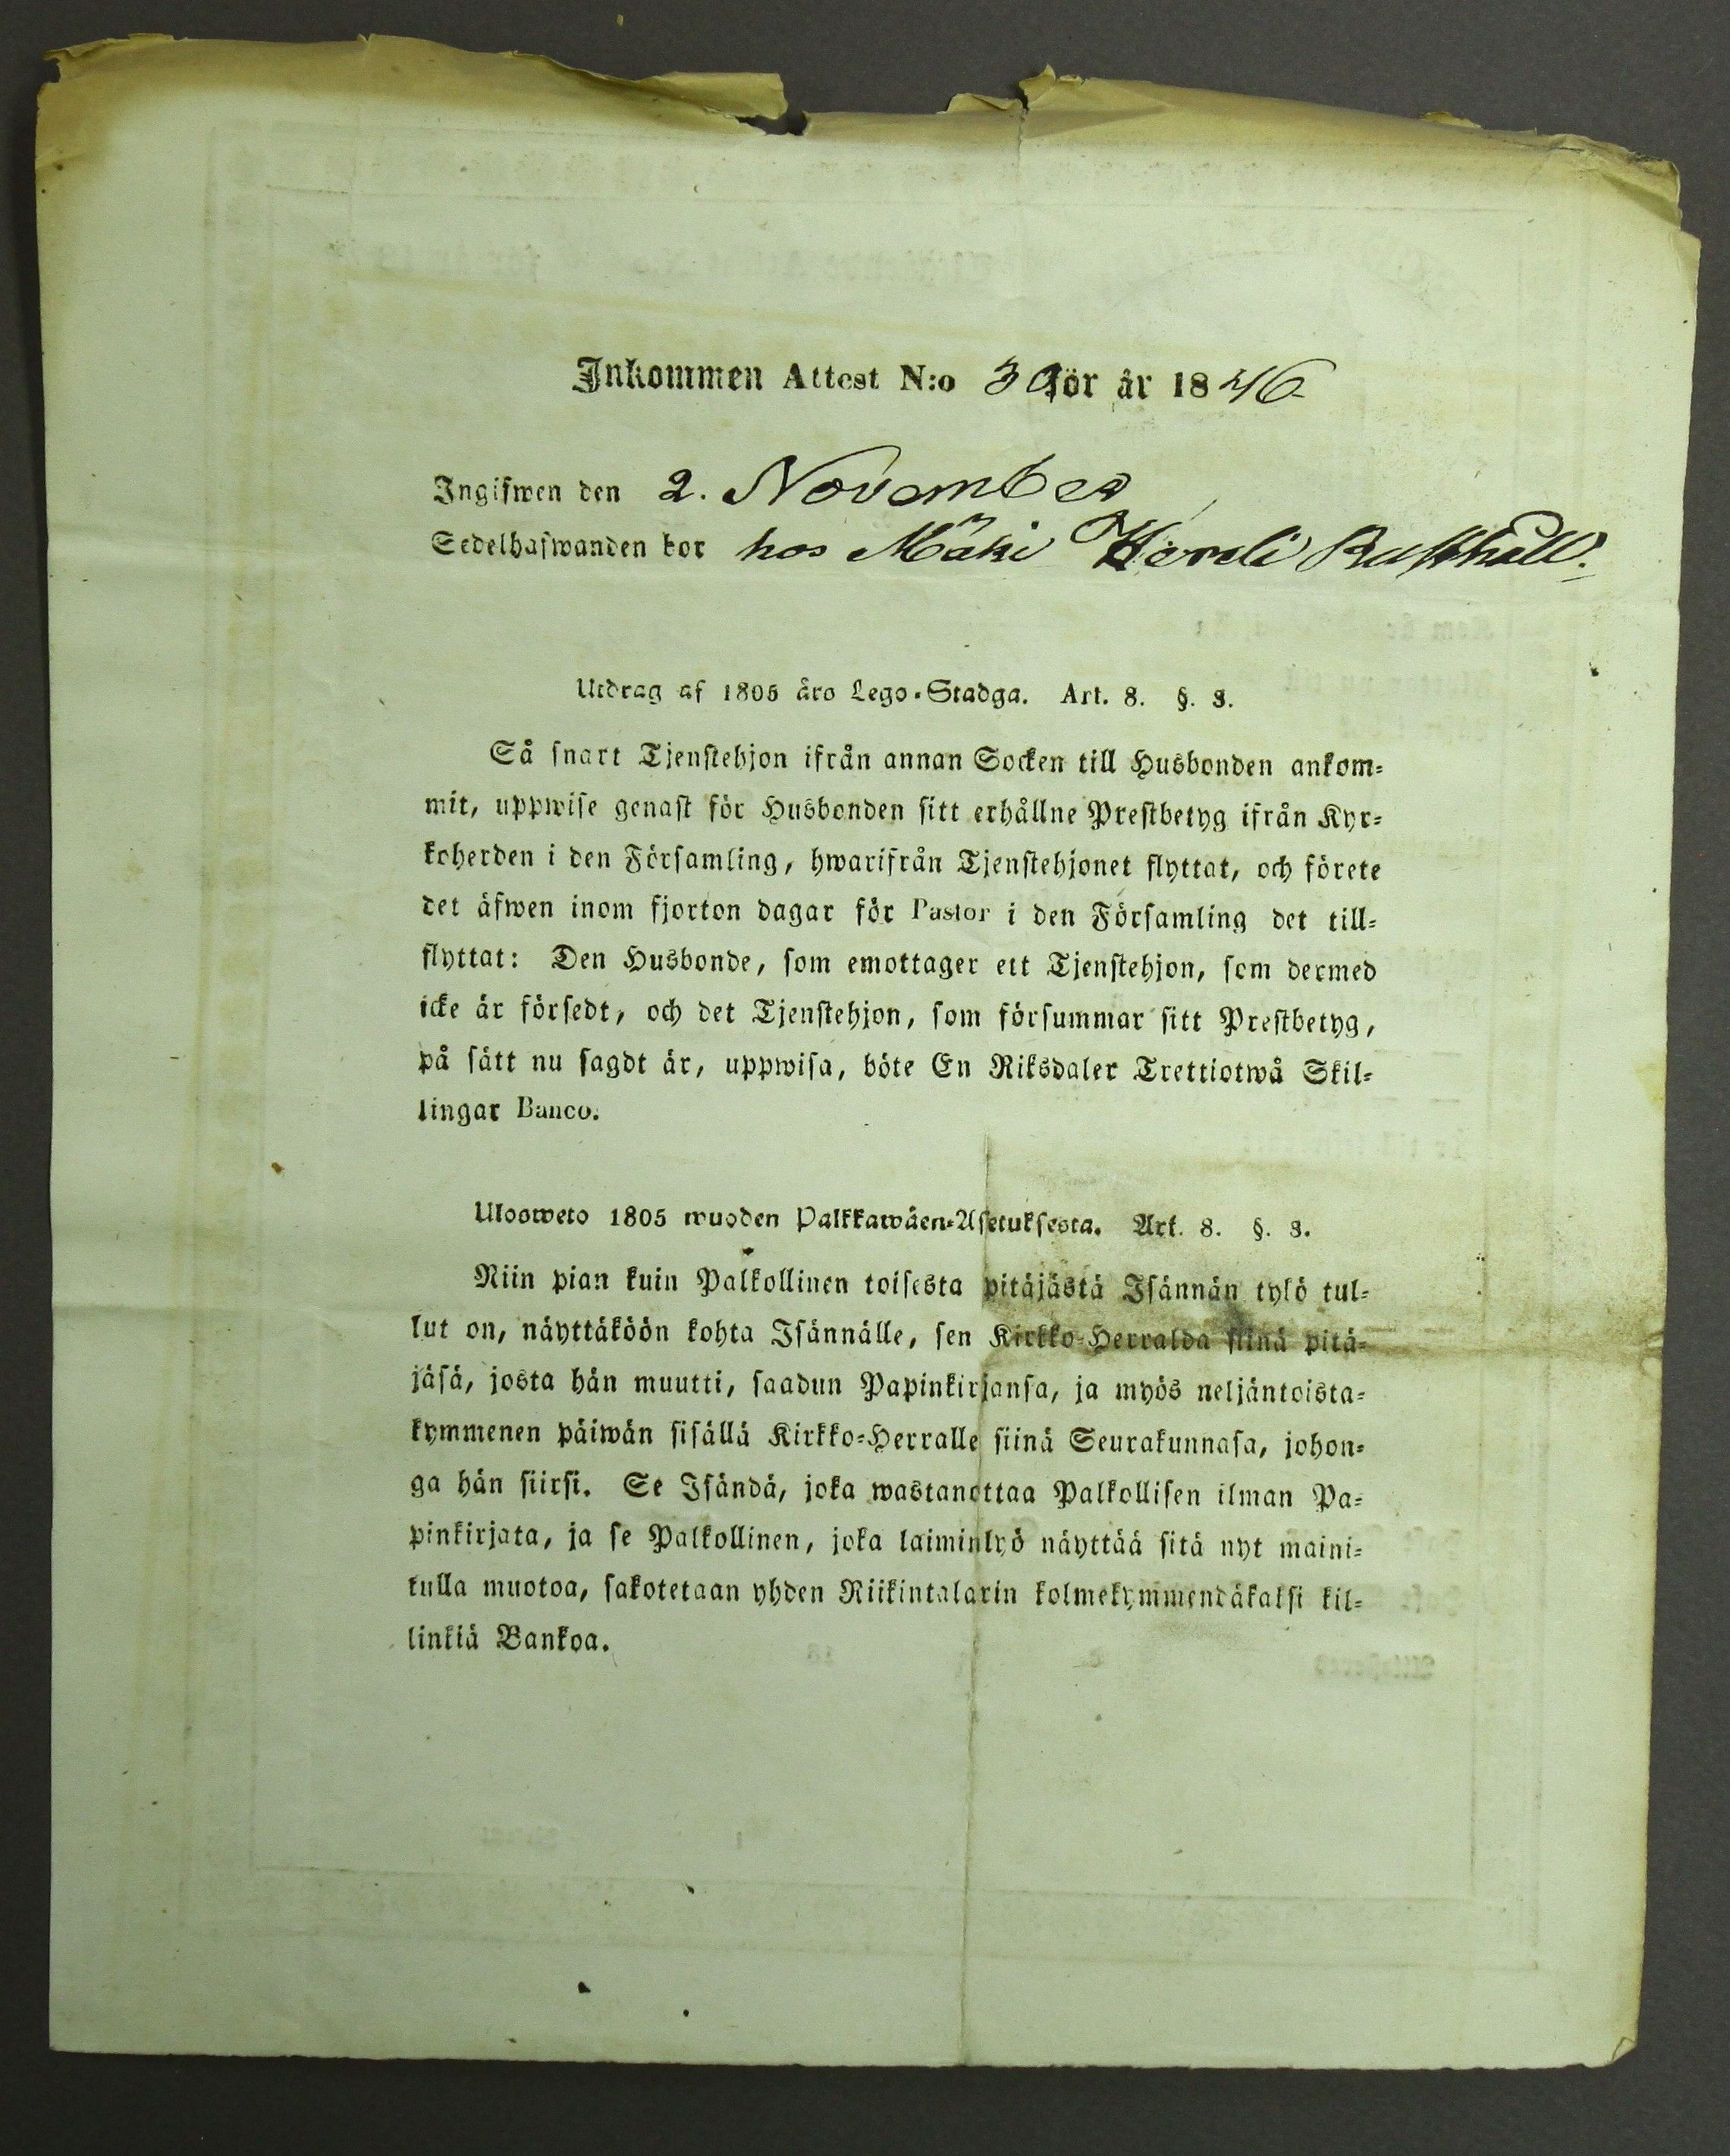 Inkommen Attest N:o 30 för år 1846
Ingifwen den 2. November
Sedelhafwanden bor hos Mäki Rusthåll.
Utdrag af 1805 års Lego-Stadga. Art. 8. §. 3.
Så snart Tjenstehjon ifrån annan Socken till Husbonden ankom-
mit, uppwise genast för Husbonden sitt erhållne Prestbetyg ifrån Kyr-
koherden i den Församling, hwarifrån Tjenstehjonet flyttat, och förete
det äfwen inom fjorton dagar för Pastor i den Församling det till-
flyttat: Den Husbonde, som emottager ett Tjenstehjon, som dermed
icke är försedt, och det Tjenstehjon, som försummar sitt Prestbetyg,
på sätt nu sagdt är, uppwisa, böte En Riksdaler Trettiotwå Skil-
lingar Banco.
Ulosweto 1805 wuoden Palkkawäen-Asetuksesta. Art. 8. §. 3.
Niin pian kuin Palkollinen toisesta pitäjästä Isännän tylö tul-
lut on, näyttäköön kohta Isännälle, sen Kirkko-Herralda siinä pitä-
jäsä, josta hän muutti, saadun Papinkirjansa, ja myös neljäntoista-
kymmenen päiwän sisällä Kirkko-Herralle siinä Seurakunnasa, johon-
ga hän siirsi. Se Isändä, joka wastanottaa Palkollisen ilman Pa-
pinkirjata, ja se Palkollinen, joka laiminlyö näyttää sitä nyt maini-
tulla muotoa, sakotetaan yhden Riikintalarin kolmekymmendäkaksi kil-
linkiä Bankoa.